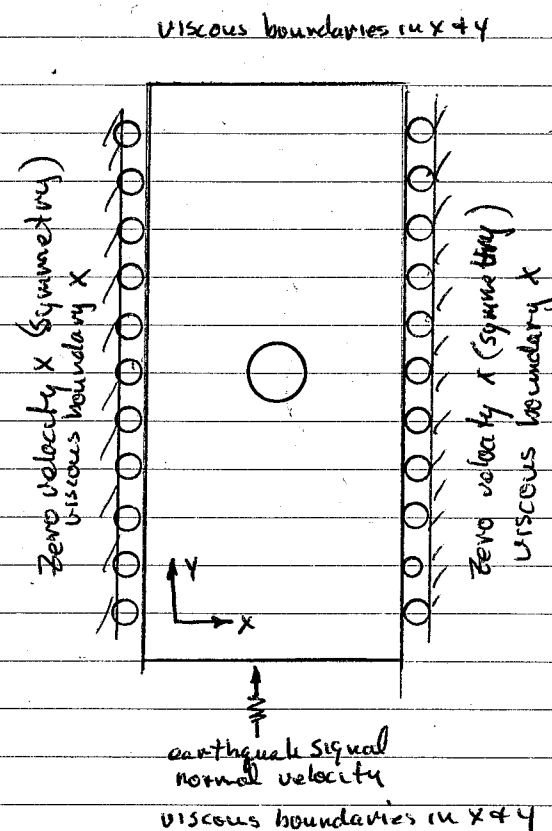 viscous boundaries in x & y
Zero velocity x (symmetry)
viscous boundary x
Zero velocity x (symmetry)
viscous boundary x
y
x
earthquake signal
normal velocity
viscous boundaries in x & y